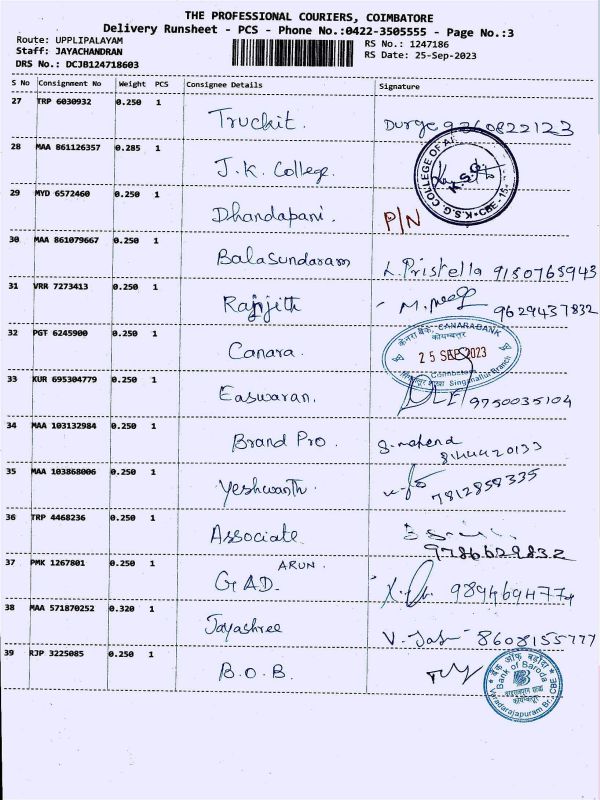 THE PROFESSIONAL COURIERS, COIMBATORE
Delivery Runsheet - PCS - Phone No.:0422-3505555 - Page No.:3
Route: UPPLIPALAYAM
RS No.: 1247186
Staff: JAYACHANDRAN
RS Date: 25-Sep-2023
DRS No.: DCJB124718603
S No Consignment No Weight PCS Consignee Details Signature
27 TRP 6030932 0.250 1
Truckit. Durge 9360822123
28 MAA 861126357 0.285 1
J.K. College.
COLLEGE OF K.S.G.
29 MYD 6572460 0.250 1
Dhandapani. P/N
30 MAA 861079667 0.250 1
Balasundaram L.Pristella 9150765943
31 VRR 7273413 0.250 1
Ranjith 9629437832
32 PGT 6245900 0.250 1
Canara.
केनरा बैंक, CANARA BANK
कोयम्बत्तूर
25 SEP 2023
Coimbatore
Singanallur Branch
33 KUR 695304779 0.250 1
Easwaran. 9750035104
34 MAA 103132984 0.250 1
Brand Pro. S.mahend
8144420133
35 MAA 103868006 0.250 1
Yeshwanth. 7812858335
36 TRP 4468236 0.250 1
Associate
9786629832
37 PMK 1267801 0.250 1
ARUN.
GAD. 9894694774
38 MAA 571870252 0.320 1
Jayashree V. 8608155777
39 RJP 3225085 0.250 1
B.O.B.
बैंक ऑफ़ बड़ौदा
Bank of Baroda
Varadarajapuram Br., CBE